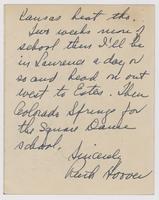 Kansas heat tho.
Two weeks more of
school then I'll be
in Lawrence a day or
so and head on out
west to Estes. Then
Colorado Springs for
the Square Dance
school.
Sincerely
Ruth Hoover